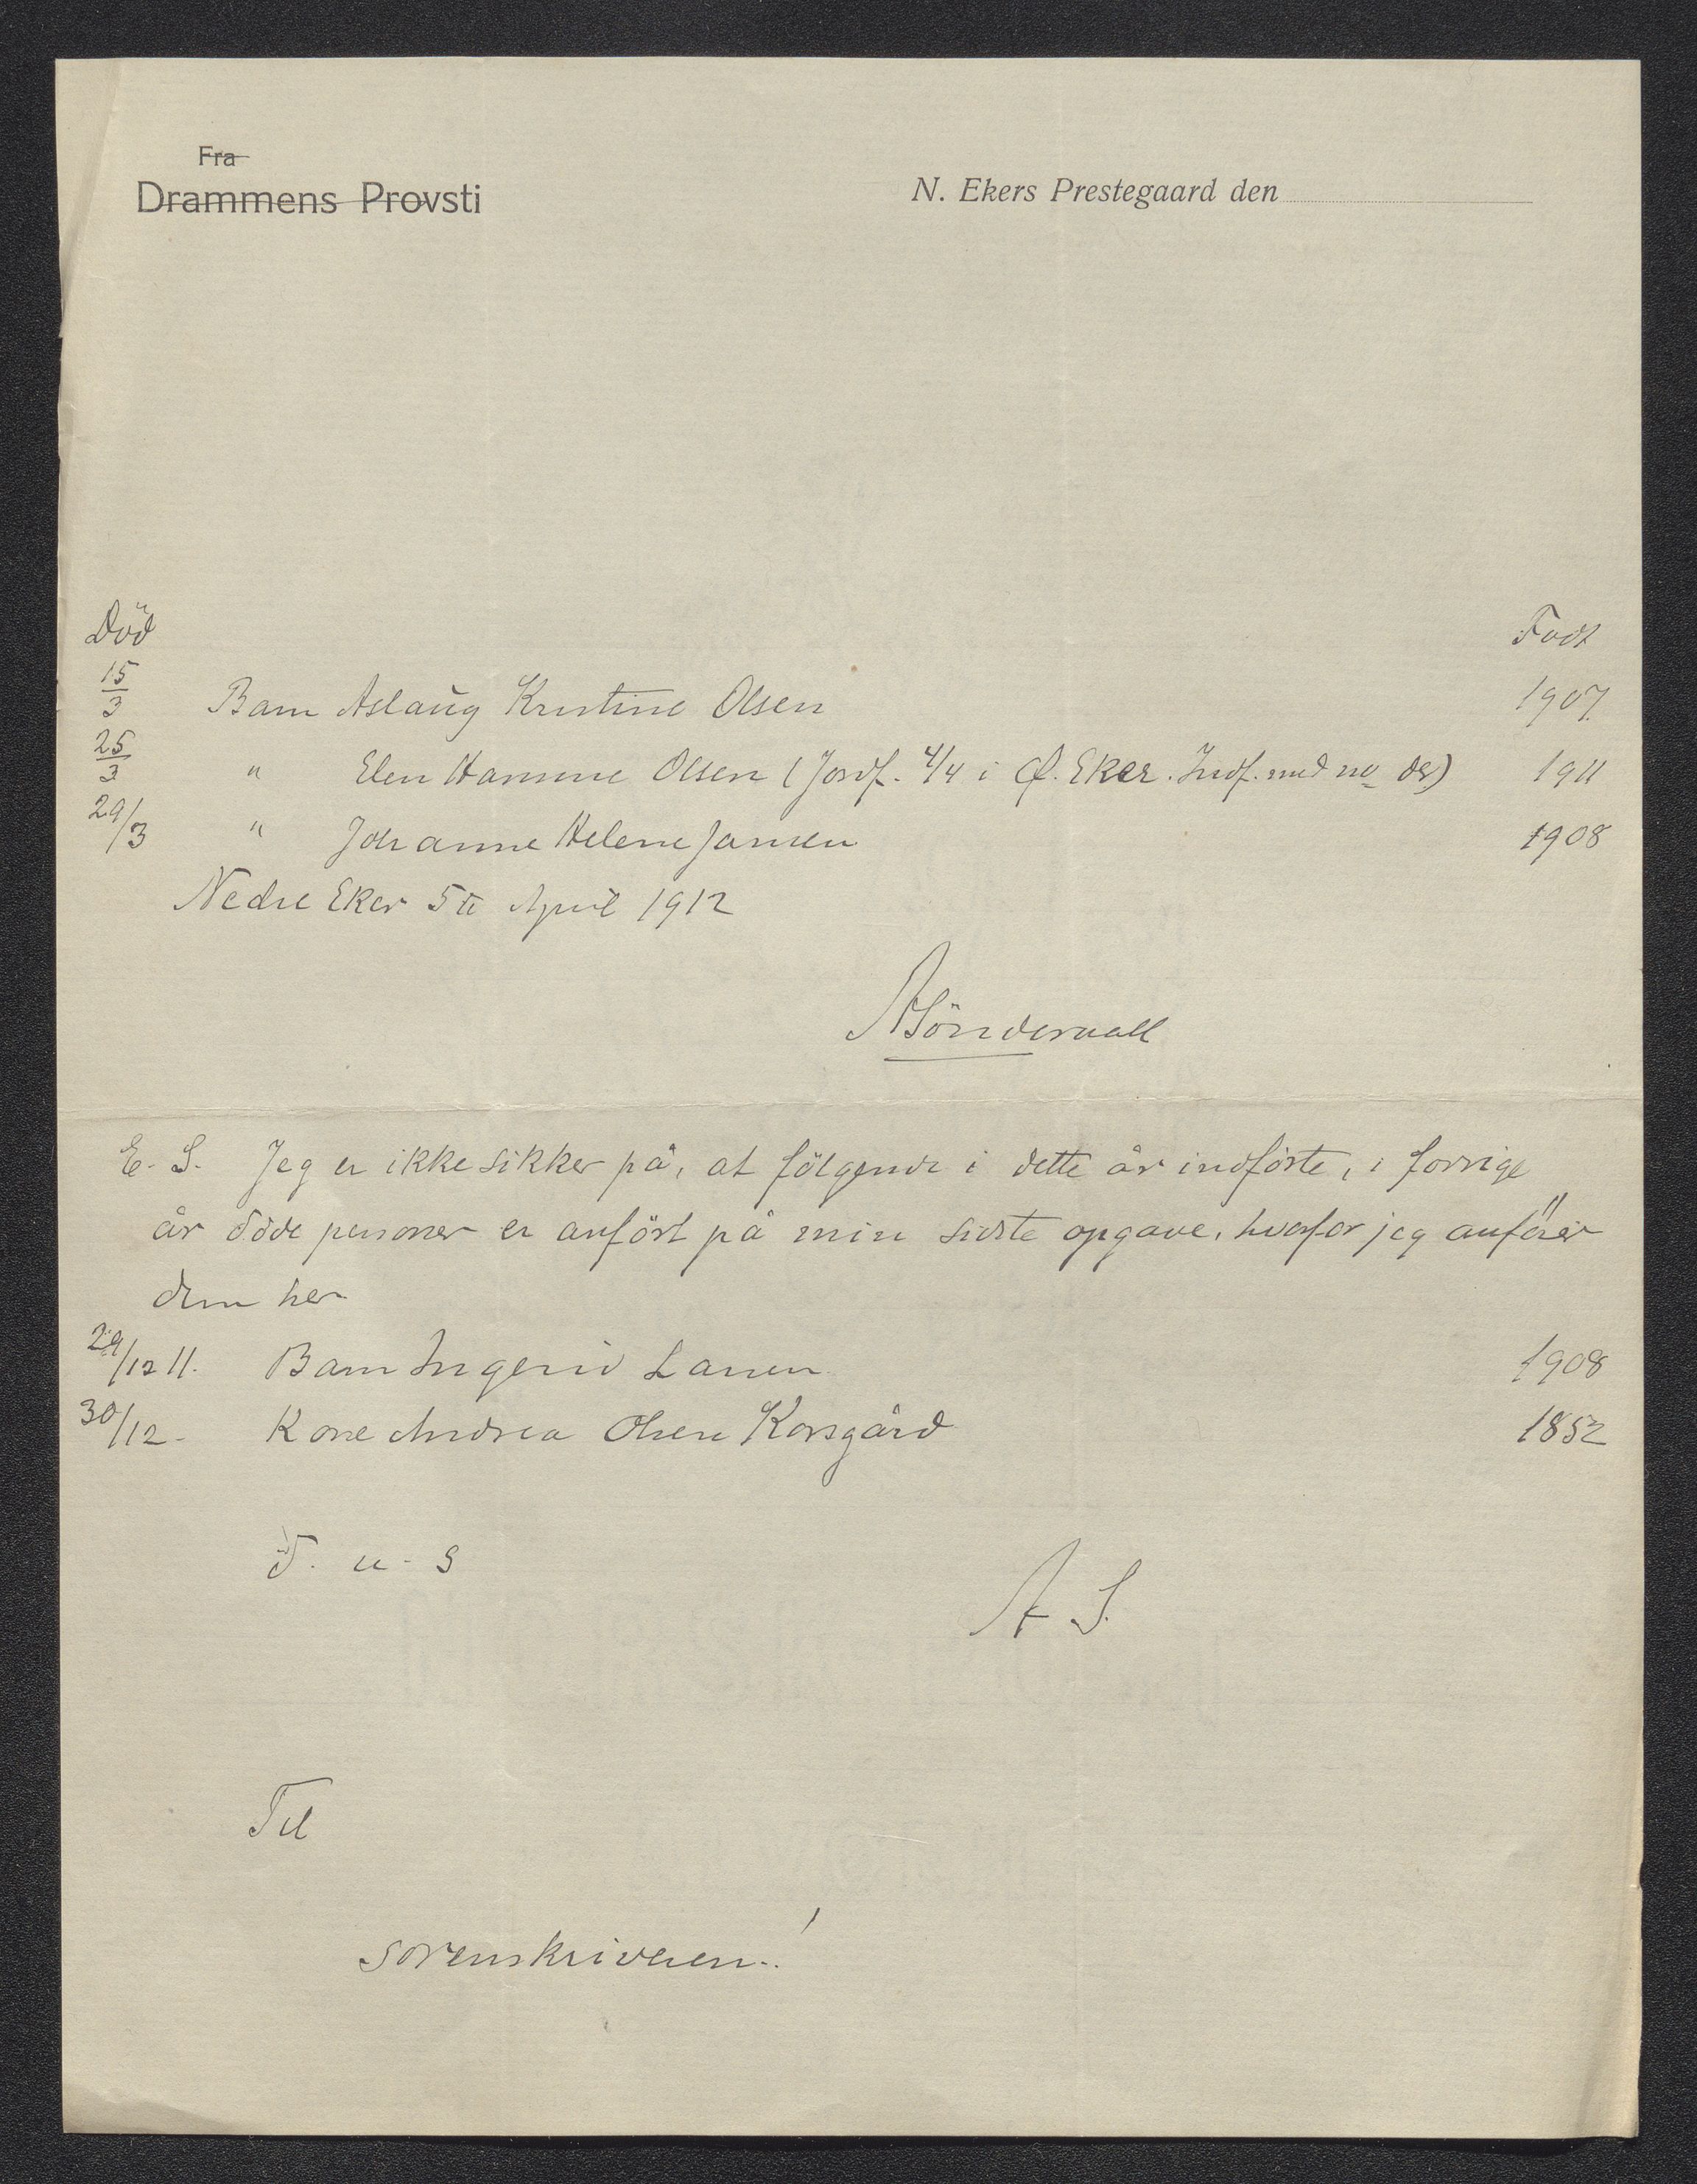 Fra
Drammens Provsti
N. Ekers Prestegaard den
Död Født
15/3 Barn Aslaug Kristine Olsen 1907
25/3 " Elen Hamine Olsen (Jordf. 4/4 i Ø. Eker. Indf. med no der) 1911
29/3 " Johanne Helene Jansen 1908
Nedre Eker 5te April 1912
A Sönderaall
E. S. Jeg er ikke sikker på, at fölgende i dette år indførte, i forrige
år döde personer er anfört på min sidste opgave, hvorfor jeg anförer
dem her
29/12 11. Barn Ingerid Larsen 1908
30/12 - Kone Andrea Olsen Korsgård 1852
D. u. s
A S.
Til
sorenskriveren!